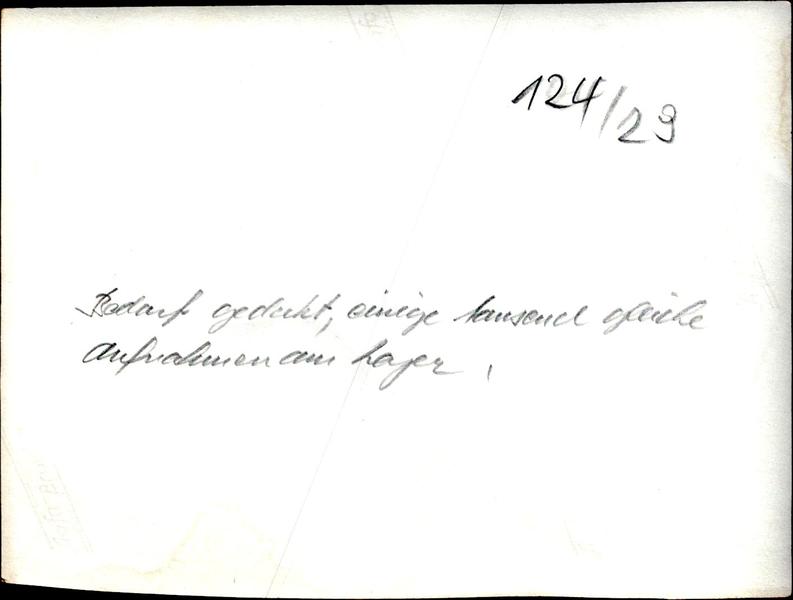 124/29
Bedarf gedeckt, einige tausend gleiche
Aufnahmen am Lager,